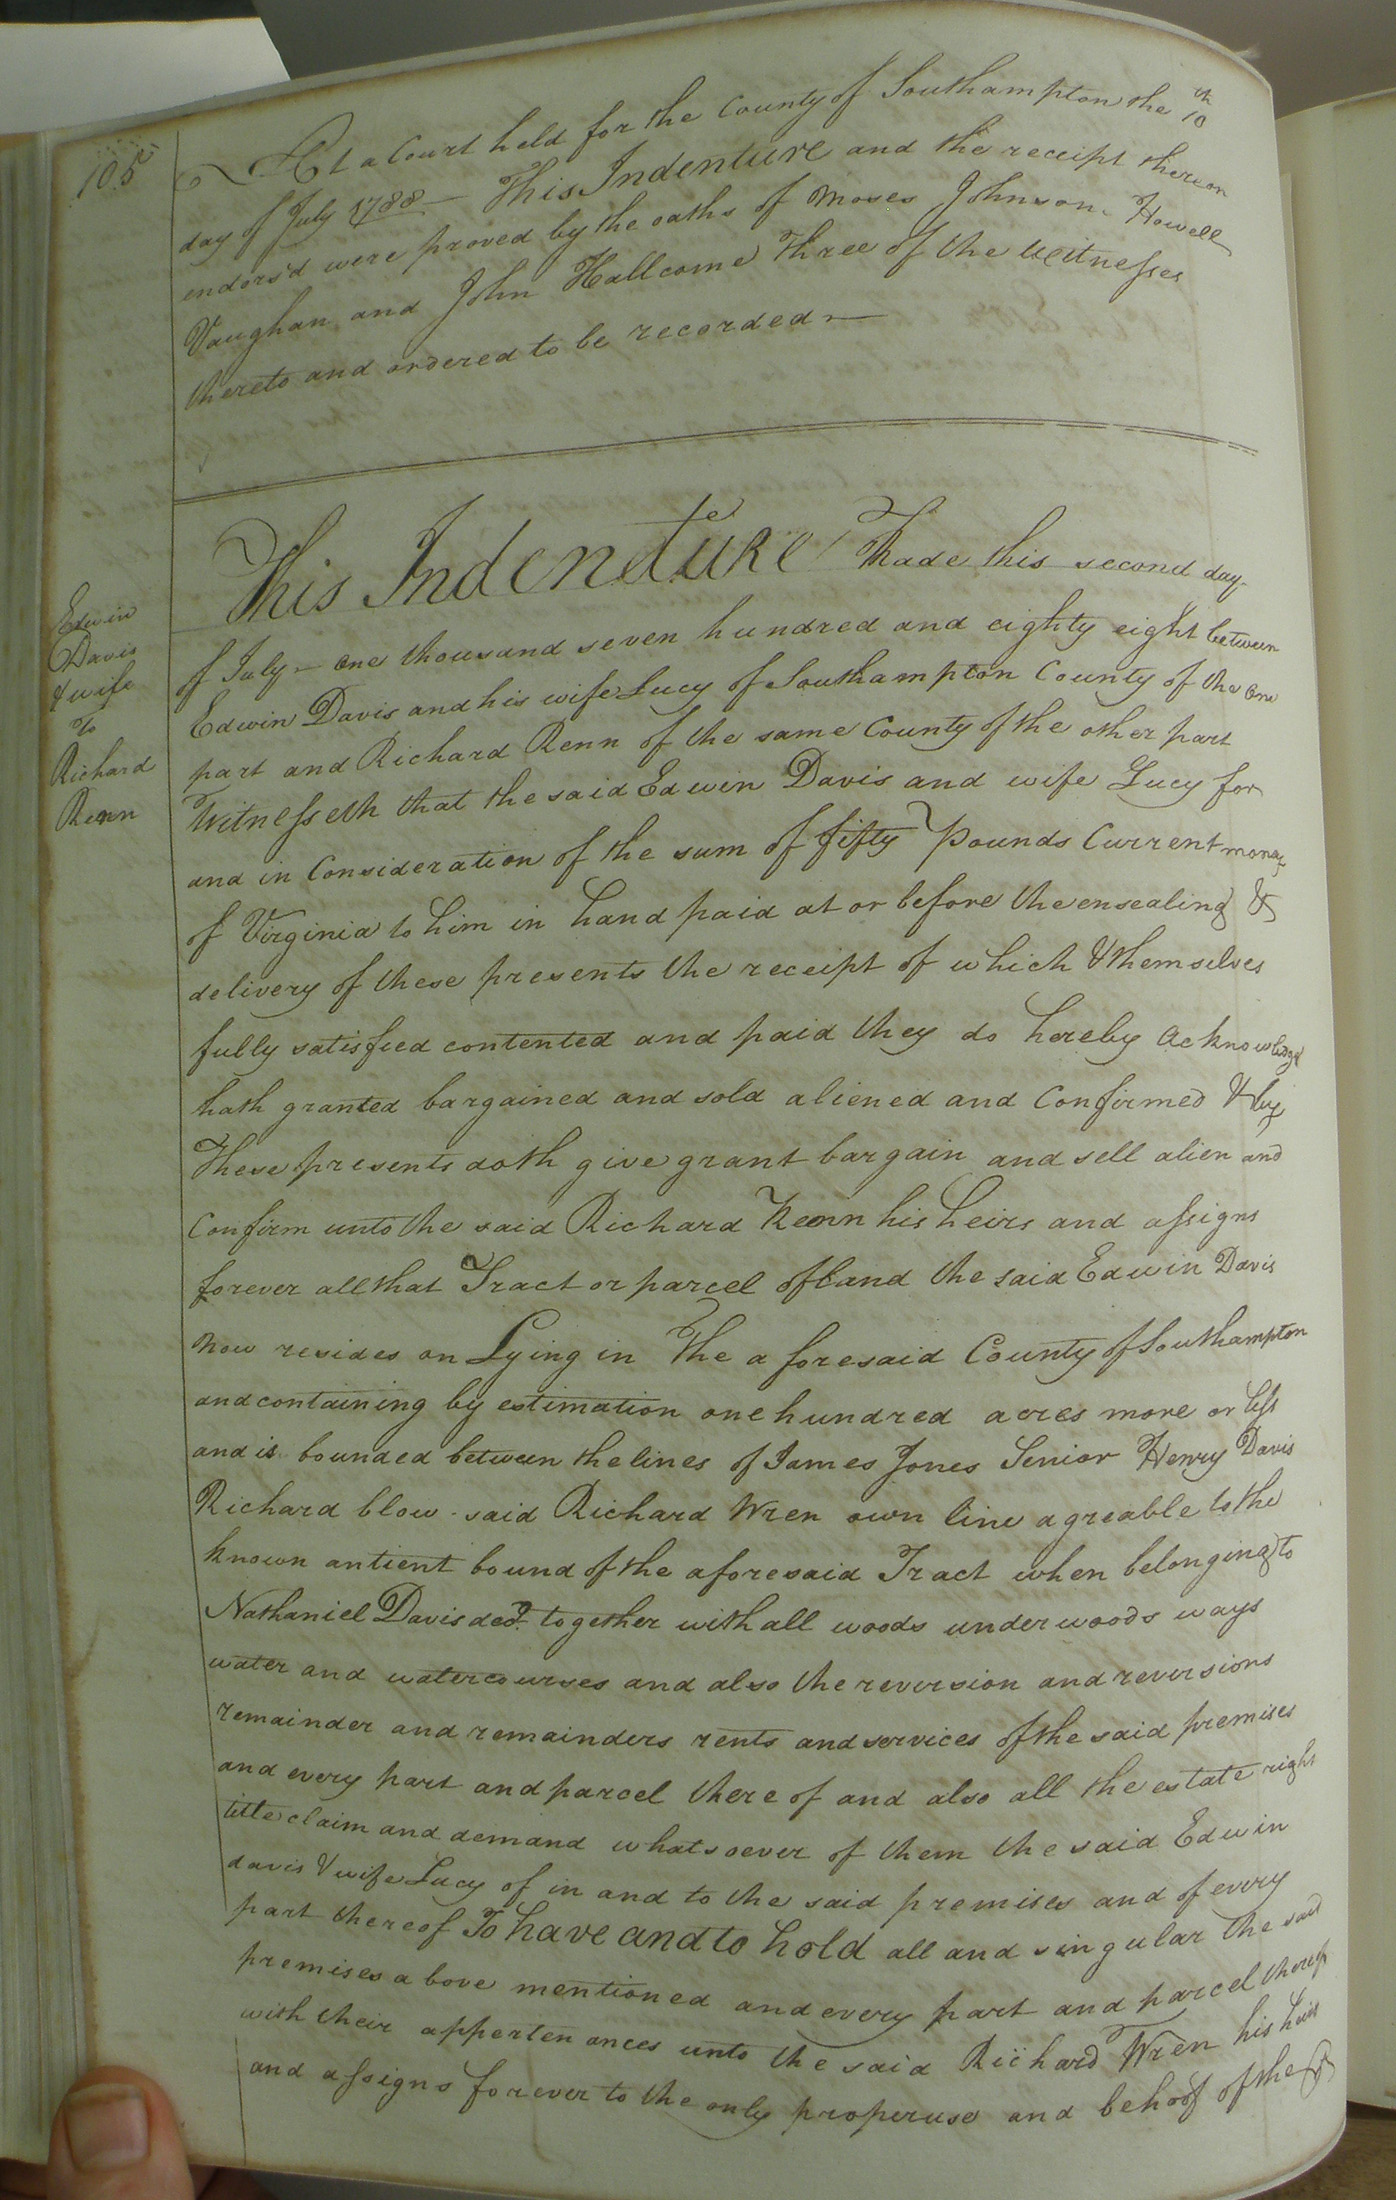 105
At a Court held for the County of Southampton the 10th
day of July 1788 — This Indenture and the receipt thereon
endors'd were proved by the oaths of Moses Johnson Howell
Vaughan and John Hallcome Three of the Witnesses
thereto and ordered to be recorded —
Edwin
Davis
& wife
To
Richard
Renn
This Indenture Made this second day
of July — one thousand seven hundred and eighty eight between
Edwin Davis and his wife Lucy of Southampton County of the one
part and Richard Renn of the same County of the other part
Witnesseth that the said Edwin Davis and wife Lucy for
and in Consideration of the sum of fifty Pounds Current money
of Virginia to him in hand paid at or before the ensealing &
delivery of these presents the receipt of which & themselves
fully satisfied contented and paid they do hereby acknowledge
hath granted bargained and sold aliened and Confirmed & by
These presents doth give grant bargain and sell alien and
Confirm unto the said Richard Renn his heirs and assigns
forever all that Tract or parcel of land the said Edwin Davis
now resides on Lying in The aforesaid County of Southampton
and containing by estimation one hundred acres more or less
and is bounded between the lines of James Jones Senior Henry Davis
Richard blow said Richard Wren own line agreable to the
known antient bound of the aforesaid Tract when belonging to
Nathaniel Davis decd. together with all woods underwoods ways
water and watercourses and also the reversion and reversions
remainder and remainders rents and services of the said premises
and every part and parcel there of and also all the estate right
title claim and demand whatsoever of them the said Edwin
davis & wife Lucy of in and to the said premises and of every
part thereof To have and to hold all and singular the said
premises above mentioned and every part and parcel thereof
with their appertenances unto the said Richard Wren his heirs
and assigns forever to the only proper use and behoof of the sd